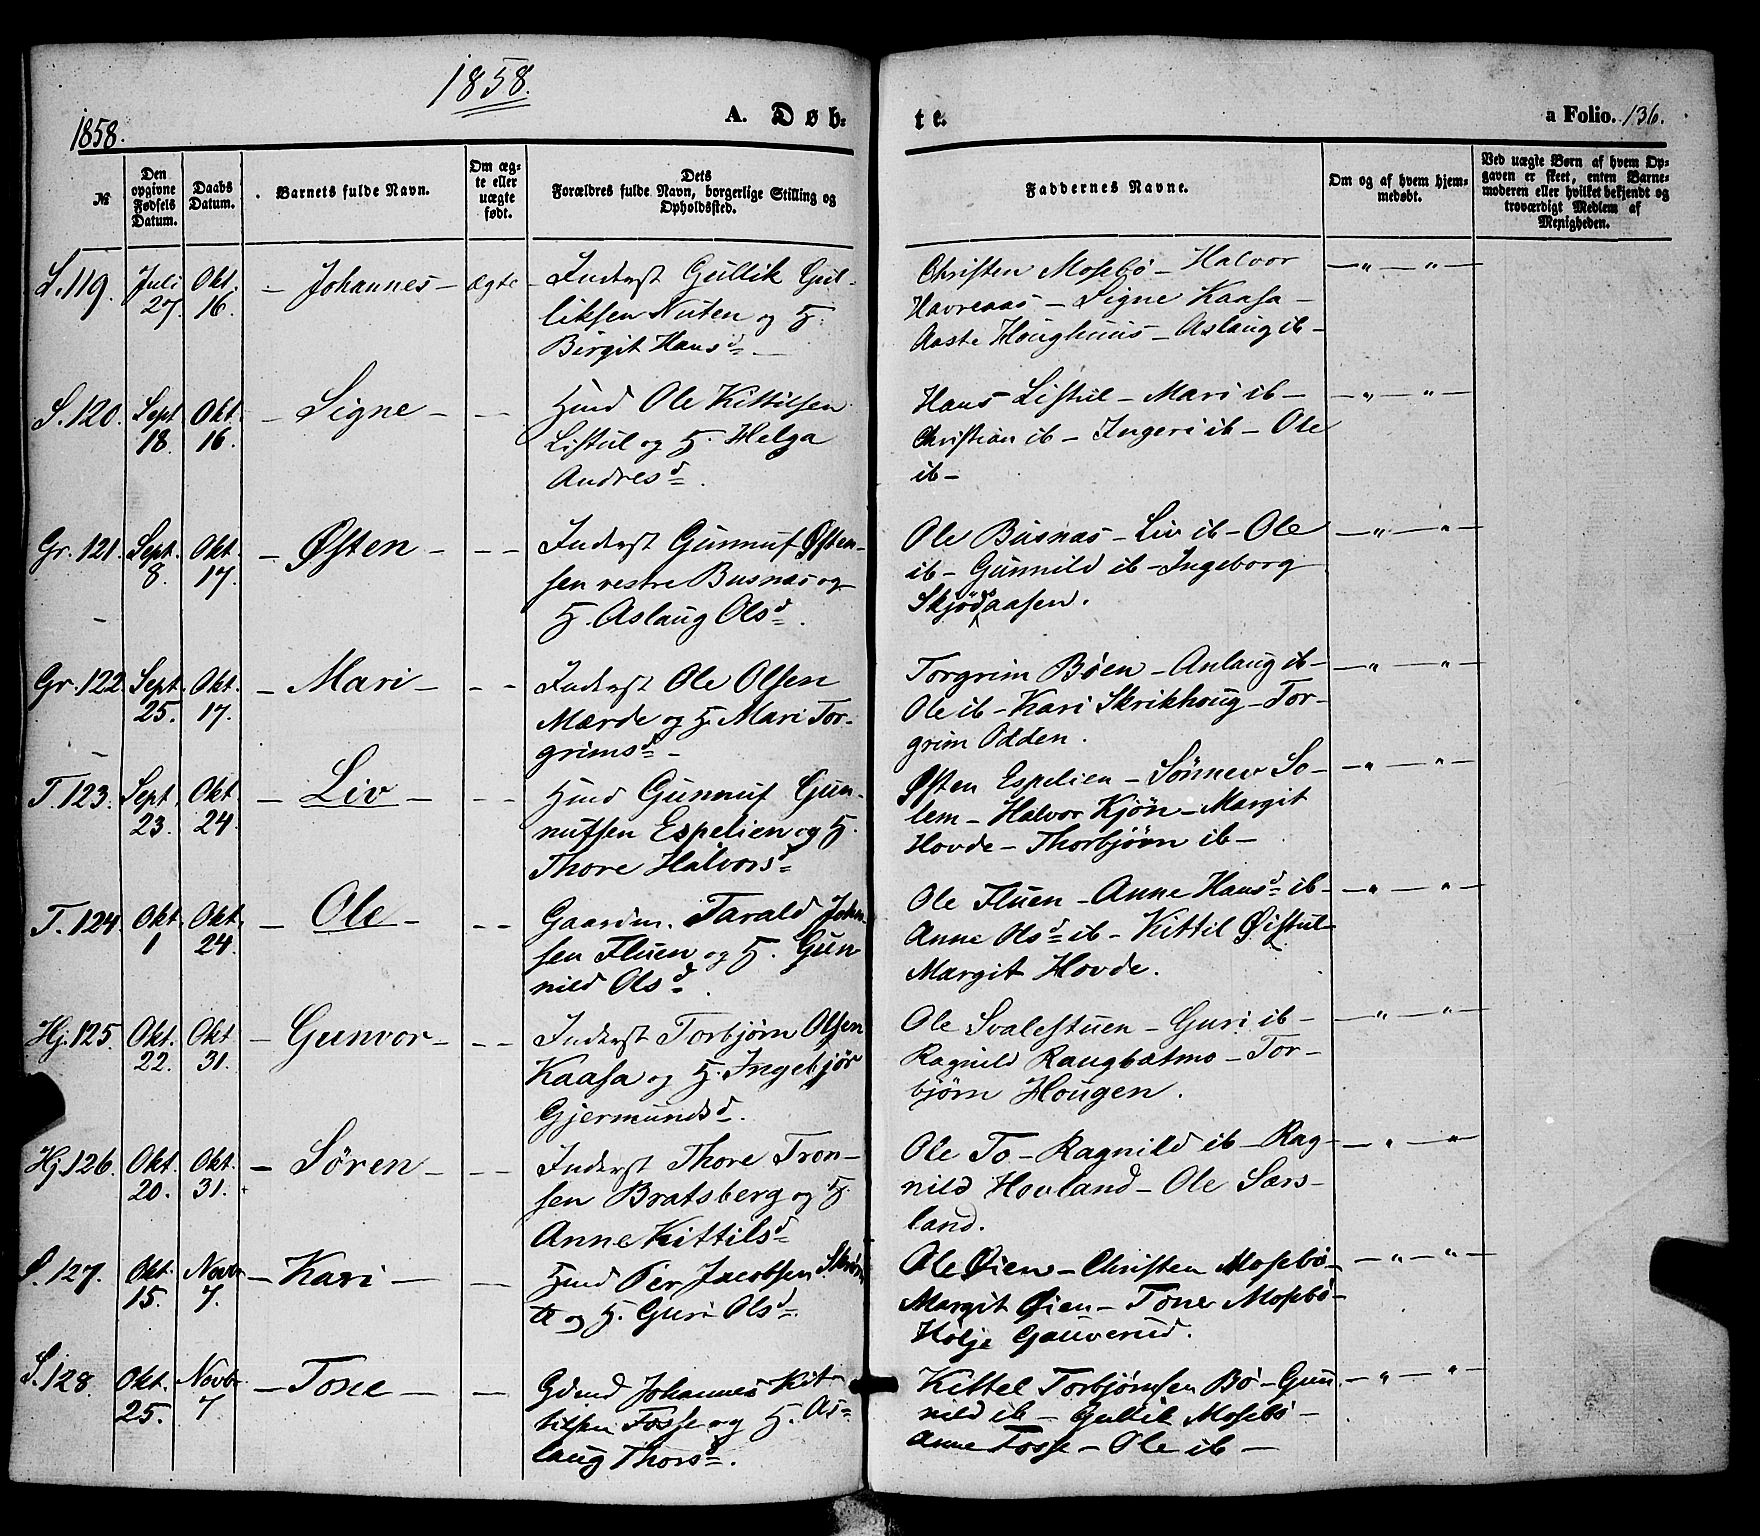 1858.
1858.
A. Døb-
te.
a Folio. 136.
№
Den opgivne Fødsels Datum.
Daabs Datum.
Barnets fulde Navn.
Om ægte eller uægte født.
Dets Forældres fulde Navn, borgerlige Stilling og Opholdssted.
Faddernes Navne.
Om og af hvem hjemmedøbt.
Ved uægte Børn af hvem Opgaven er skeet, enten Barnemoderen eller hvilket bekjendt og troværdigt Medlem af Menigheden.
S. 119. Juli 27 Okt. 16. - Johannes - Ægte - Inderst Gullik Gul-
liksen Nuten og H.
Birgit Hansd -
Christen Mosebö - Halvor
Havreaas - Signe Kaasa -
Aaste Houghuus - Aslaug ib -
S. 120. Sept 18. Okt. 16. - Signe - - - Hmd Ole Kittilsen
Listul og H. Helga
Andresd.
Hans Listul - Mari ib -
Christian ib - Ingeri ib - Ole
ib -
Gr. 121. Sept. 8. Okt. 17. - Østen - - - Inderst Gunnuf Østen-
sen vestre Busnas og
H. Aslaug Olsd.
Ole Busnas - Liv ib - Ole
ib - Gunnild ib - Ingeborg
Skjödsaasen.
Gr. 122 Sept. 25. Okt. 17. - Mari - - - Inderst Ole Olsen
Mærde og H. Mari Tor-
grimsd -
Torgrim Böen - Anlaug ib -
Ole ib - Kari Skrikhoug - Tor-
grim Odden.
T. 123. Sept. 23. Okt 24. - Liv - - - Hmd Gunnuf Gun-
nufsen Espelien og H.
Thore Halvorsd
Østen Espelien - Sönnev So-
lem - Halvor Kjön - Margit
Hovde - Thorbjörn ib -
T. 124. Okt. 1 Okt. 24. - Ole - - - Gaardm. Tarald John-
sen Fluen og H. Gun
nild Olsd.
Ole Fluen - Anne Hansd ib -
Anne Olsd ib - Kittil Øistul -
Margit Hovde.
Hj. 125. Okt. 22. Okt 31. - Gunvor - - - Inderst Torbjörn Olsen
Kaasa og H. Ingebjör
Gjermundsd.
Ole Svalestuen - Guri ib -
Ragnild Raugbatmo - Tor-
björn Hougen.
Hj. 126. Okt. 20. Okt. 31. - Sören - - - Inderst Thore Tron-
sen Bratsberg og H.
Anne Kittilsd
Ole To - Ragnild ib - Rag-
nild Hovland - Ole Sars-
land.
S. 127. Okt. 15. Novbr 7. - Kari - - Hmd Per Jacobsen
og H. Guri Olsd.
Ole Øien - Christen Mosebö -
Margit Øien - Tone Mosebö -
Holje Gauverud.
S. 128. Okt. 25. Novbr 7 - Tone - - Gdmd Johannes Kit-
tilsen Fosse og H. As-
laug Thorsd.
Kittel Torbjörnsen Bö - Gun
nild ib - Gullik Mosebö -
Anne Fosse - Ole ib -